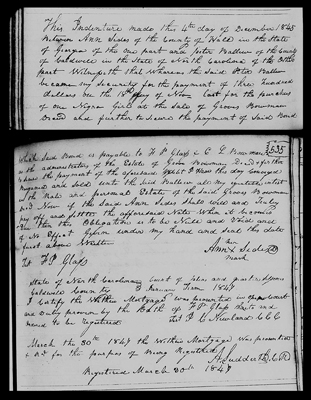 This Indenture made this 4th day of December 1845
Between Ann Sides of the County of Wald in the State
of Georgia of the one part and Peter Ballew of the County
of Caldwell in the State of North Carolina of the other
part Witnesseth that Whereas the Said Peter Ballew
became my Security for the payment of three hundred
dollars on the 18th day of Nov last for the purchase
of one Negro Girl at the Sale of Bowman
Decd and further to Secure the payment of Said Bond
535
which Said Bond is payable to H P & C. G. Bowman
the administrators of the Estate of Bowman Decd
the payment of the aforesaid I have this day
and Sold unto the Said Ballew all my
in the Real and personal Estate of the Said Bowman
Decd Now if the Said Ann Sides Shall well and Truly
pay off and the aforesaid Note When it becomes
due then this Obligation is to be Null and Void and
of No Effect Given under my hand and Seal this date
first above Written
her
Ann X Sides
mark
Test H P
State of North Carolina Court of pleas and quarter Sessions
Caldwell County January Term 1847
I Certify the Within Mortgage was presented in Open Court
and duly proven by the Oath of H P and
to be registered Test
March the 30th 1847 the Within Mortgage was presented
to me for the purpose of being Registered
Registered March 30th 1847